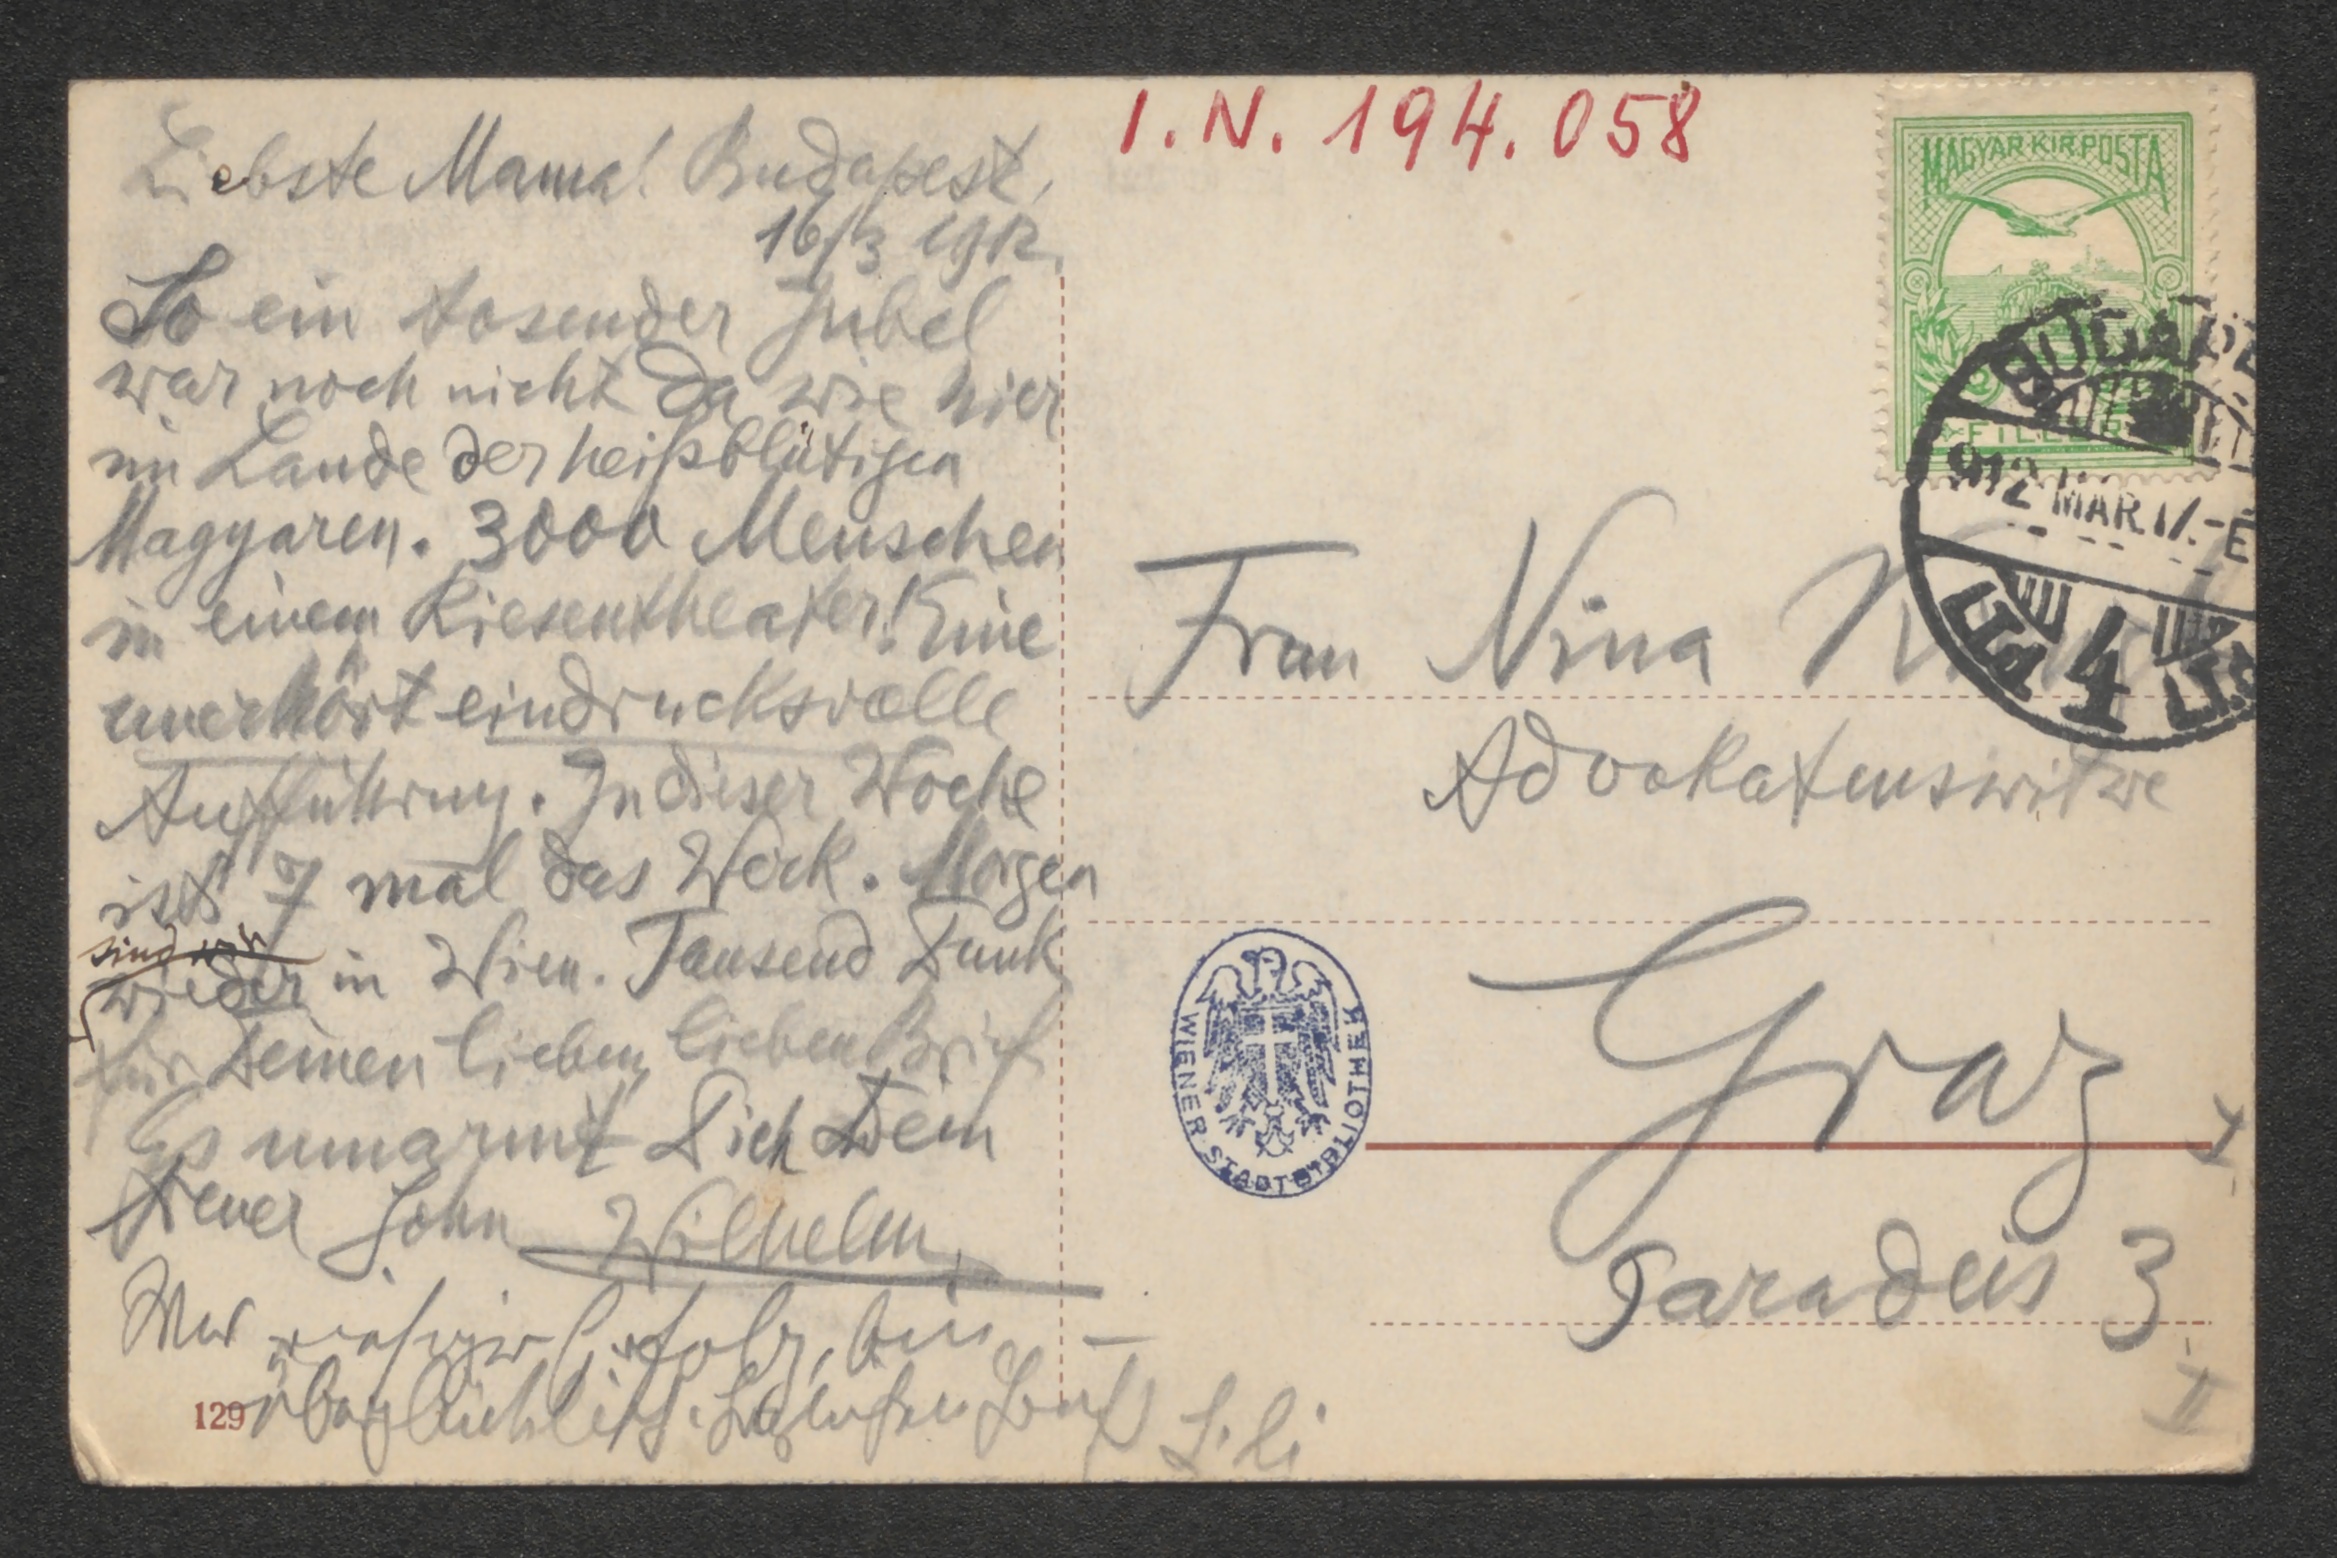 Liebste Mama! Budapest,
16/3 1912.
So ein tosender Jubel
war noch nicht da wie hier
im Lande der heißblütigen
Magyaren. 3000 Menschen
in einem Riesentheater! Eine
unerhört eindrucksvolle
Aufführung. In dieser Woche
ist 7 mal das Werk. Morgen
sind wir
wieder in Wien. Tausend Dank
für Deinen lieben, lieben Brief
Es umarmt Dich Dein
treuer Sohn Wilhelm
überglücklich.
Lili
129
I. N. 194. 058
MAGYAR KIR. POSTA
FILLÉR
BUDAPE
912 MAR. 17. - E
4
Frau Nina
Advokatenswitwe
Graz
Paradeis 3
II
WIENER STADTBIBLIOTHEK